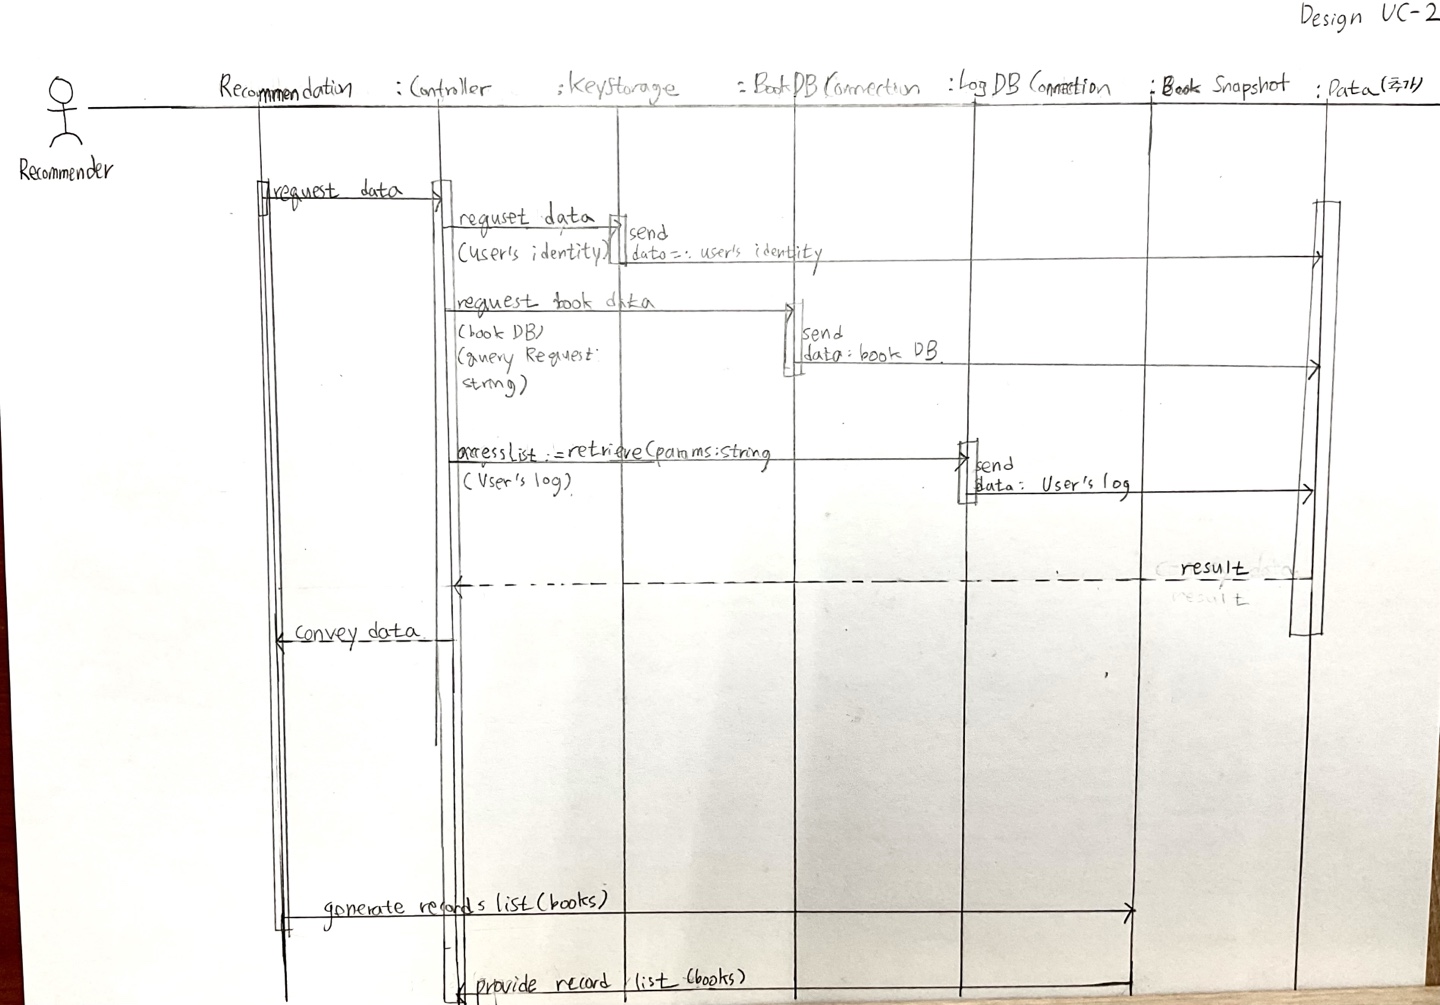 Design UC-2
Recommendation :Controller :KeyStorage :BookDB Connection :Log DB Connection :Book Snapshot :Data(추가)
Recommender
request data
reguset data
(user's identity)
send
data=: user's identity
request book data
(book DB)
(query Request
string)
send
data: book DB
accesslist :=retrieve(params:string
(User's log)
send
data: User's log
result
result
convey data
generate records list(books)
provide record list (books)